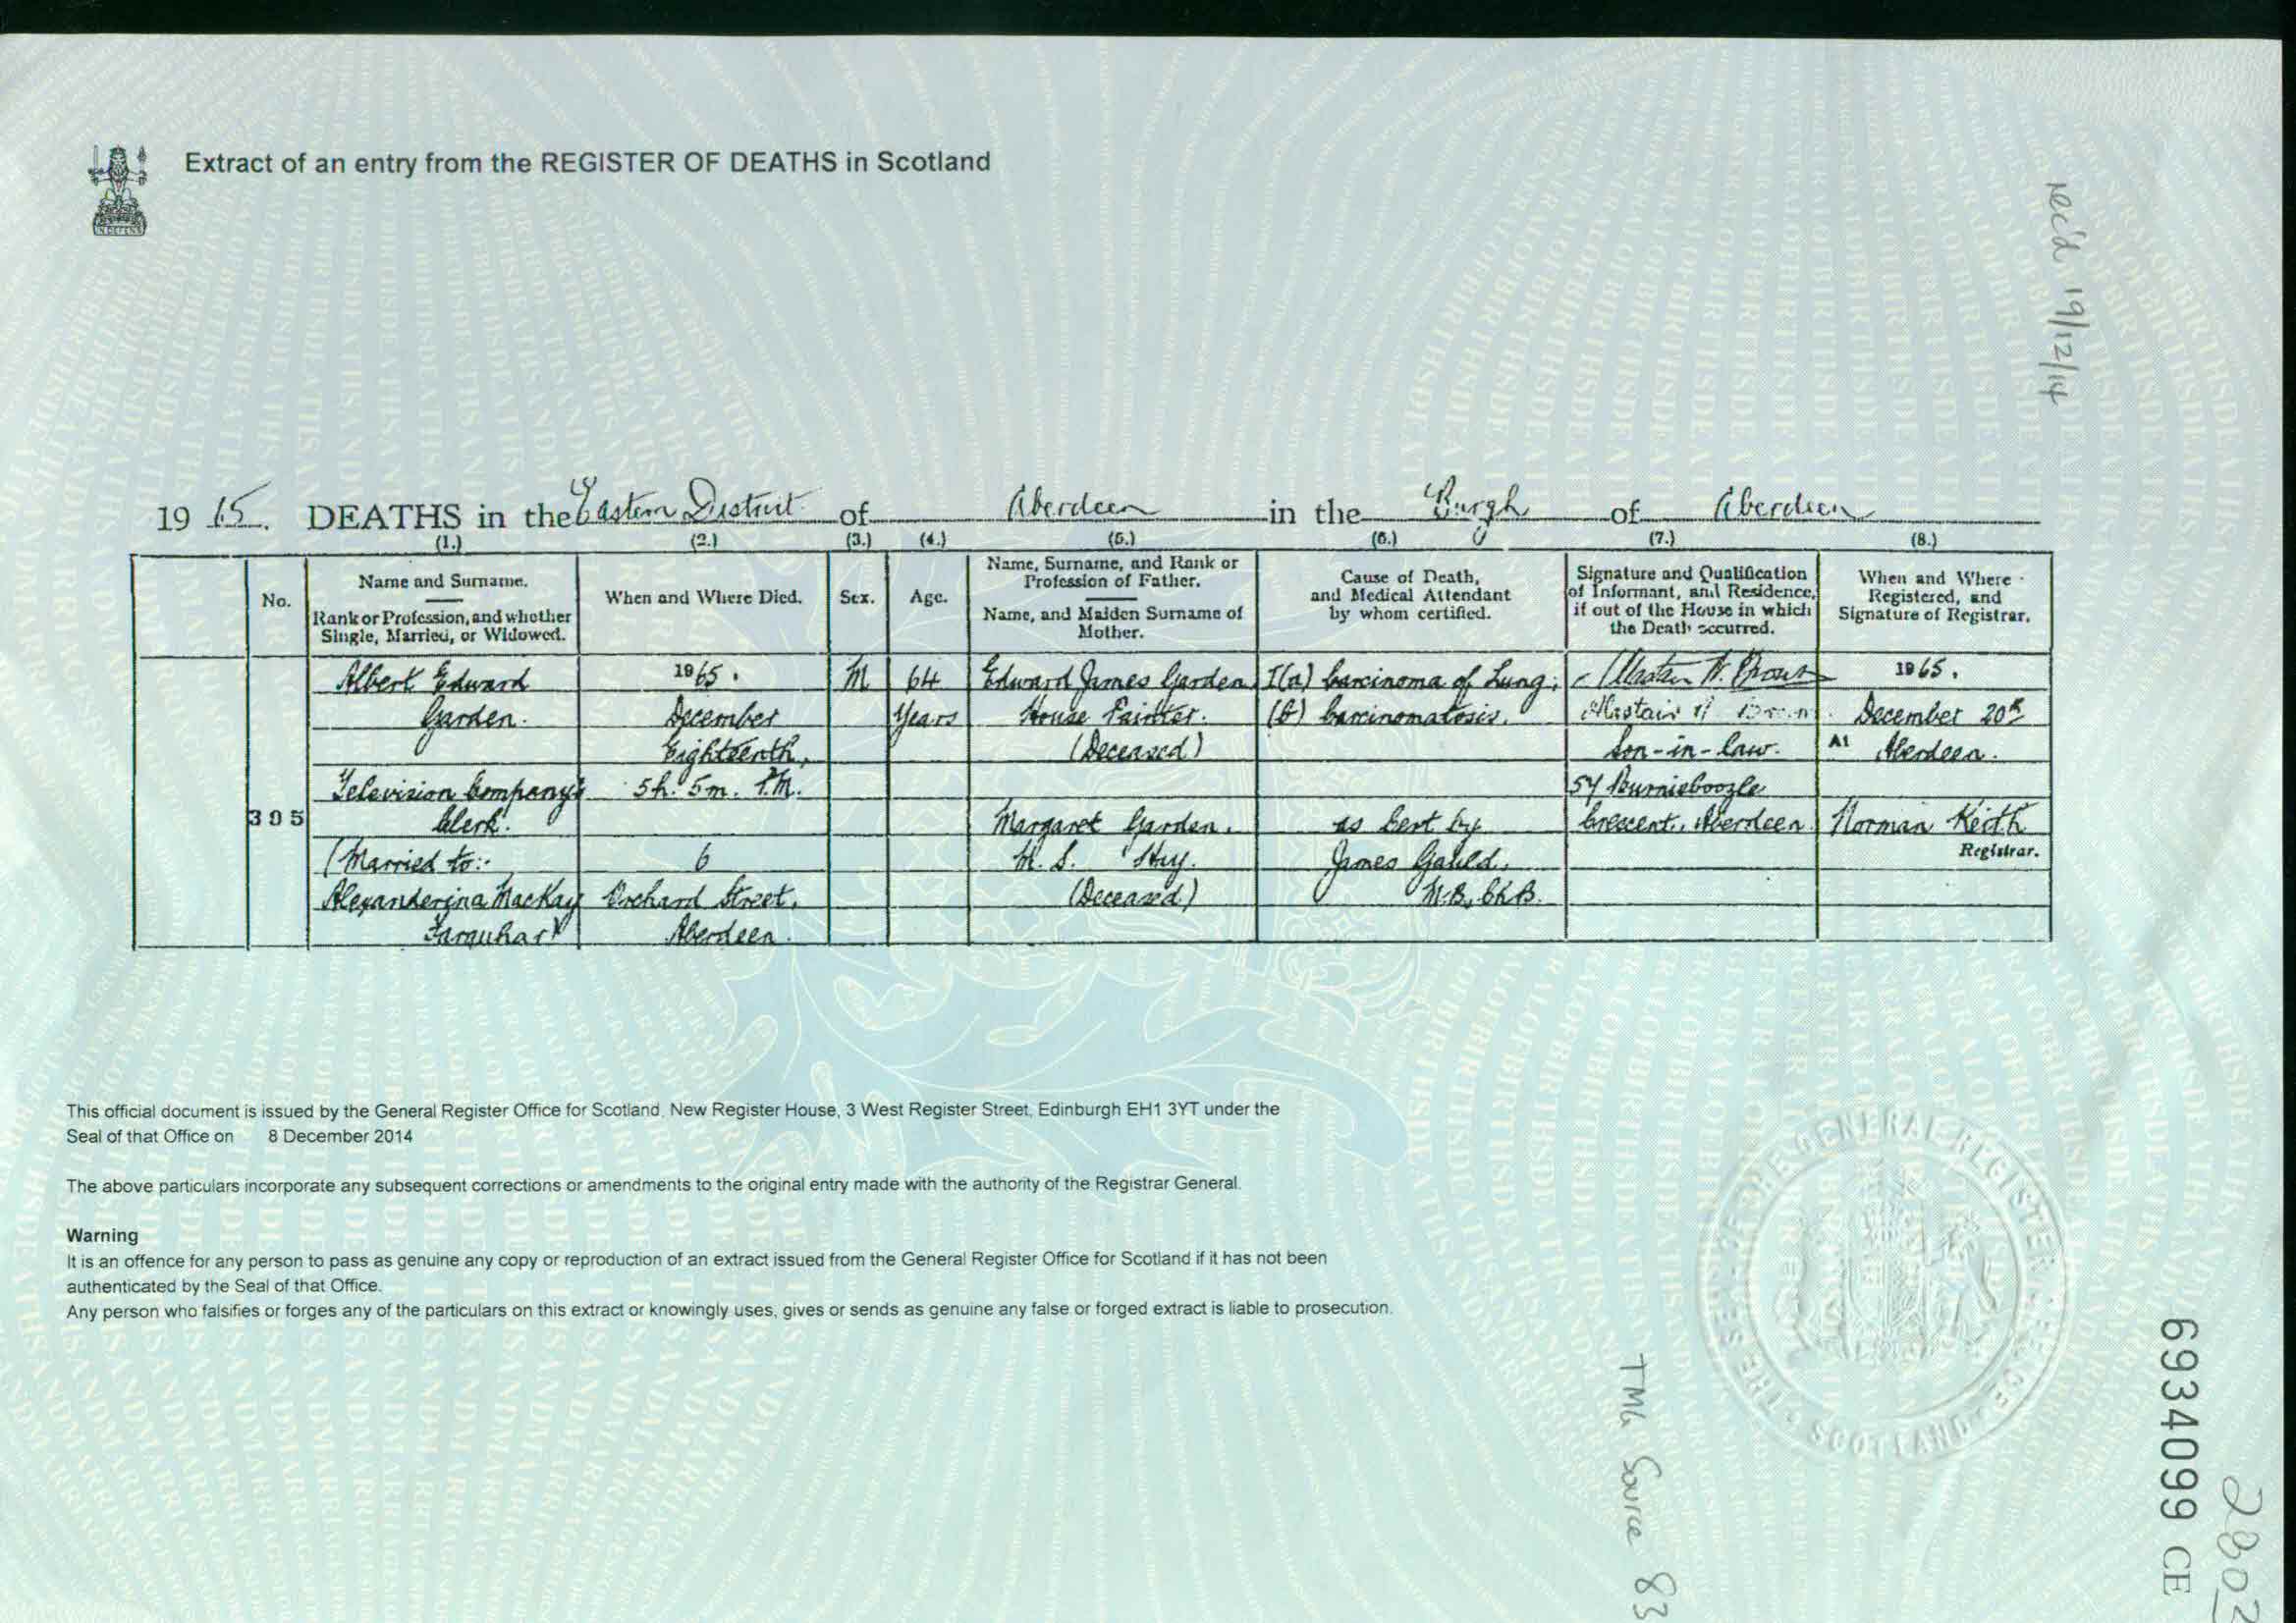 Extract of an entry from the REGISTER OF DEATHS in Scotland
rec'd 19/12/14
1965. DEATHS in the Eastern District of Aberdeen in the Burgh of Aberdeen
(1.) (2.) (3.) (4.) (5.) (6.) (7.) (8.)
No.
Name and Surname.
Rank or Profession, and whether
Single, Married, or Widowed.
When and Where Died.
Sex.
Age.
Name, Surname, and Rank or
Profession of Father.
Name, and Maiden Surname of
Mother.
Cause of Death,
and Medical Attendant
by whom certified.
Signature and Qualification
of Informant, and Residence,
if out of the House in which
the Death occurred.
When and Where
Registered, and
Signature of Registrar.
305
Albert Edward
Garden.
Television Company's
Clerk.
(Married to:-
Alexanderina MacKay
Farquhar)
1965.
December
Eighteenth,
5h. 5m. P.M.
6
Orchard Street,
Aberdeen.
M
64
Years
Edward James Garden
House Painter.
(Deceased)
Margaret Garden.
M.S. Hay.
(Deceased)
I(a) Carcinoma of Lung;
(b) Carcinomatosis.
as Cert by
James Gauld,
M.B., Ch.B.
Alastair
Son-in-law.
54 Burnieboozle
Crescent, Aberdeen.
1965.
December 20th
At Aberdeen.
Norman Keith
Registrar.
This official document is issued by the General Register Office for Scotland, New Register House, 3 West Register Street, Edinburgh EH1 3YT under the
Seal of that Office on 8 December 2014
The above particulars incorporate any subsequent corrections or amendments to the original entry made with the authority of the Registrar General.
Warning
It is an offence for any person to pass as genuine any copy or reproduction of an extract issued from the General Register Office for Scotland if it has not been
authenticated by the Seal of that Office.
Any person who falsifies or forges any of the particulars on this extract or knowingly uses, gives or sends as genuine any false or forged extract is liable to prosecution.
TMG Source 83
6934099 CE
2802